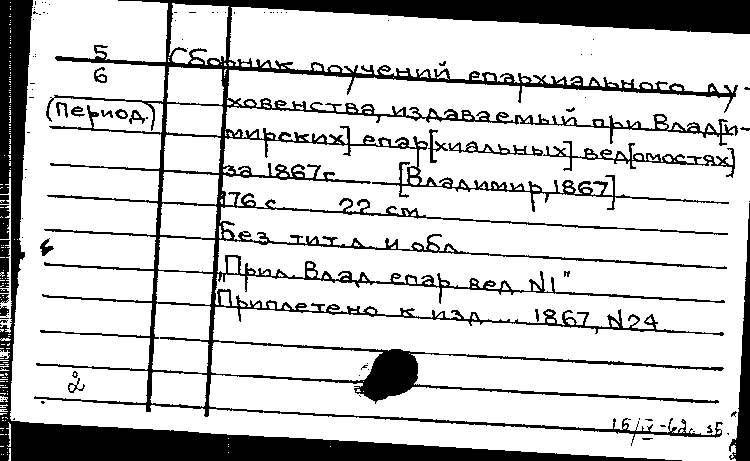 5
6
(Период.)
Сборник поучений епархиального ду-
ховенства, издаваемый при Влад[и-
мирских] епар[хиальных] вед[омостях]
за 1867г. [Владимир, 1867].
176 с. 22 см.
Без тит.л. и обл.
„Прил. Влад. епар. вед. N1"
Приплетено к изд. ... 1867, N24
2